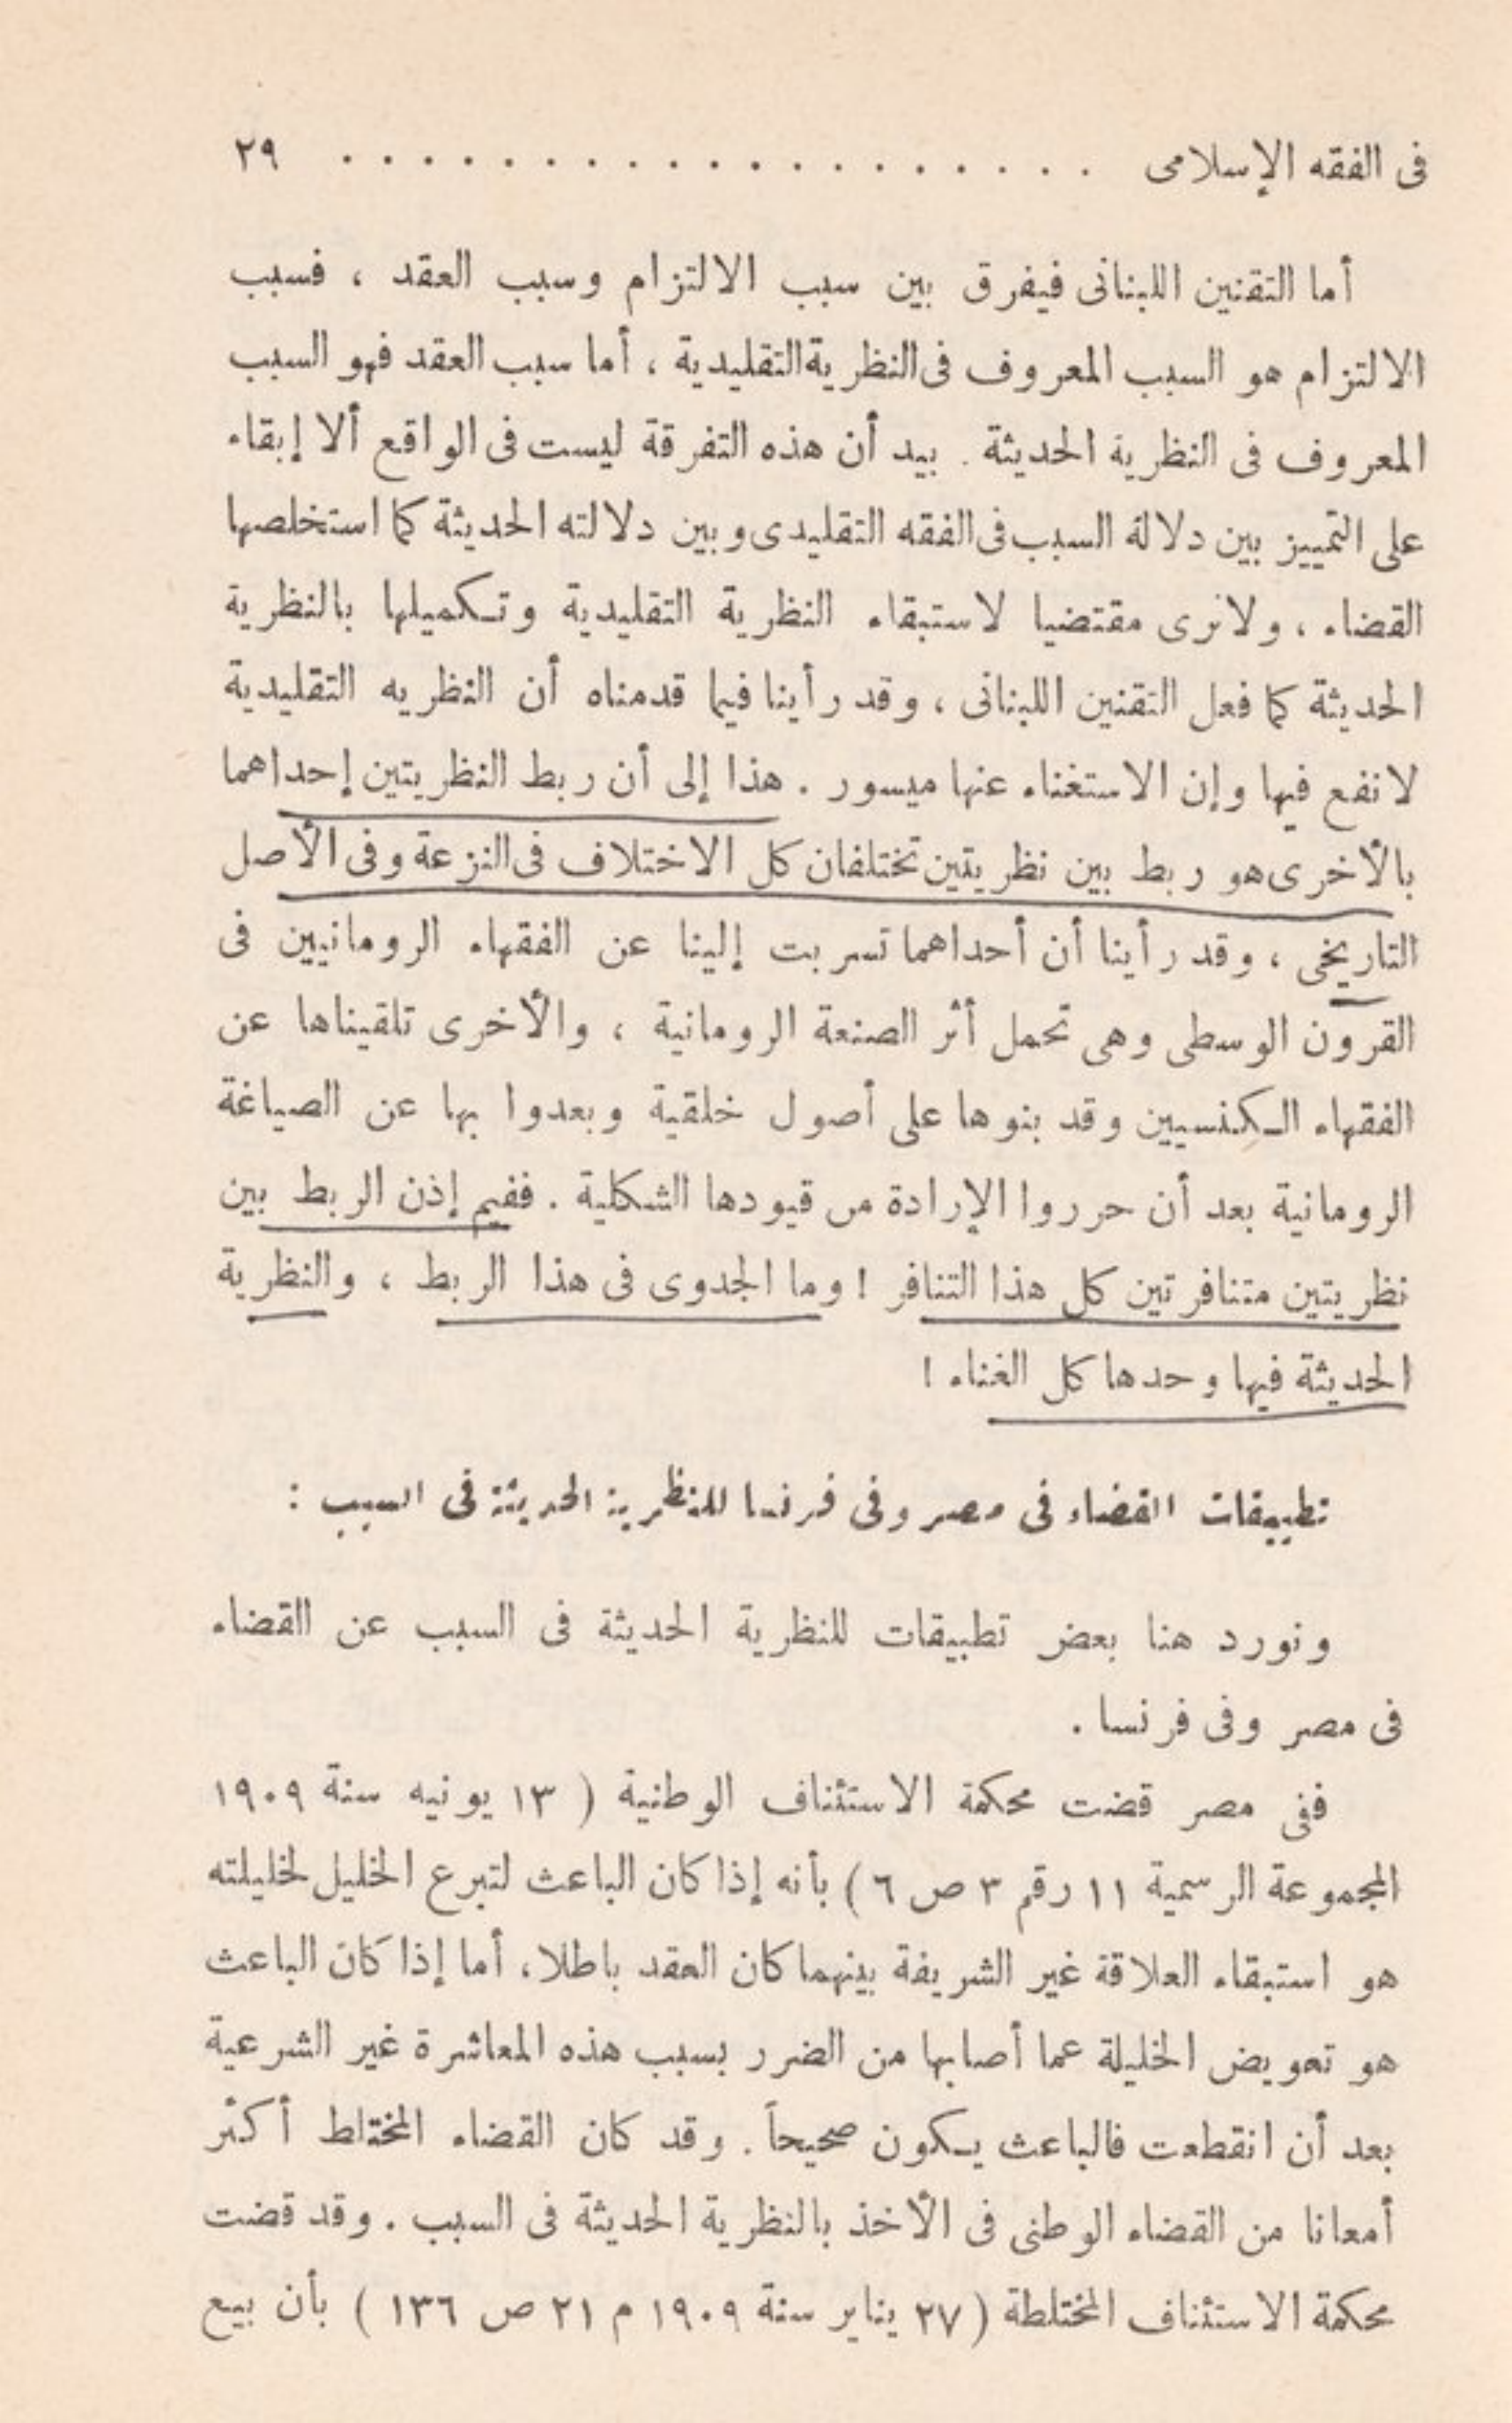 فى الفقه الإسلامى . . . . . . . . . . . . . . . . . . . ٢٩
أما التقنين اللبنانى فيفرق بين سبب الالتزام وسبب العقد ، فسبب
الالتزام هو السبب المعروف فى النظرية التقليدية ، أما سبب العقد فهو السبب
المعروف فى النظرية الحديثة . بيد أن هذه التفرقة ليست فى الواقع ألا إبقاء
على التمييز بين دلالة السبب فى الفقه التقليدى وبين دلالته الحديثة كما استخلصها
القضاء ، ولا نرى مقتضيا لاستبقاء النظرية التقليدية وتكميلها بالنظرية
الحديثة كما فعل التقنين اللبنانى ، وقد رأينا فيما قدمناه أن النظريه التقليدية
لا نفع فيها وإن الاستغناء عنها ميسور . هذا إلى أن ربط النظريتين إحداهما
بالأخرى هو ربط بين نظريتين تختلفان كل الاختلاف فى النزعة وفى الأصل
التاريخى ، وقد رأينا أن أحداهما تسربت إلينا عن الفقهاء الرومانيين فى
القرون الوسطى وهى تحمل أثر الصنعة الرومانية ، والأخرى تلقيناها عن
الفقهاء الكنسيين وقد بنوها على أصول خلقية وبعدوا بها عن الصياغة
الرومانية بعد أن حرروا الإرادة من قيودها الشكلية . ففيم إذن الربط بين
نظريتين متنافرتين كل هذا التنافر ! وما الجدوى فى هذا الربط ، والنظرية
الحديثة فيها وحدها كل الغناء !
تطبيقات القضاء فى مصر وفى فرنسا للنظرية الحديثة فى السبب :
ونورد هنا بعض تطبيقات للنظرية الحديثة فى السبب عن القضاء
فى مصر وفى فرنسا .
ففى مصر قضت محكمة الاستئناف الوطنية ( ١٣ يونيه سنة ١٩٠٩
المجموعة الرسمية ١١ رقم ٣ ص ٦ ) بأنه إذا كان الباعث لتبرع الخليل لخليلته
هو استبقاء العلاقة غير الشريفة بينهما كان العقد باطلا ، أما إذا كان الباعث
هو تعويض الخليلة عما أصابها من الضرر بسبب هذه المعاشرة غير الشرعية
بعد أن انقطعت فالباعث يكون صحيحاً . وقد كان القضاء المختلط أكثر
أمعانا من القضاء الوطنى فى الأخذ بالنظرية الحديثة فى السبب . وقد قضت
محكمة الاستئناف المختلطة ( ٢٧ يناير سنة ١٩٠٩ م ٢١ ص ١٣٦ ) بأن بيع